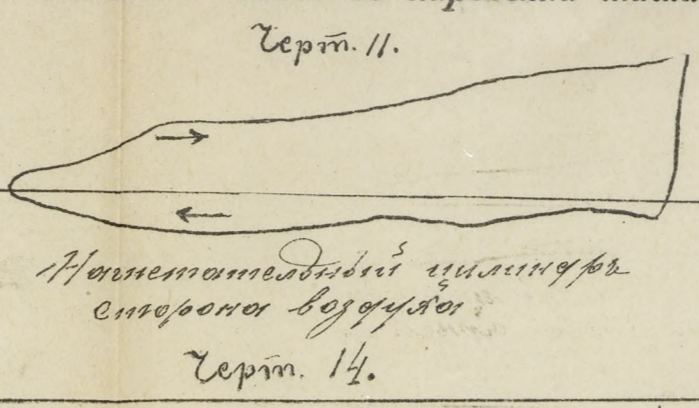 Черт. 11.
Нагнетательный цилиндръ
сторона воздуха
Черт. 14.